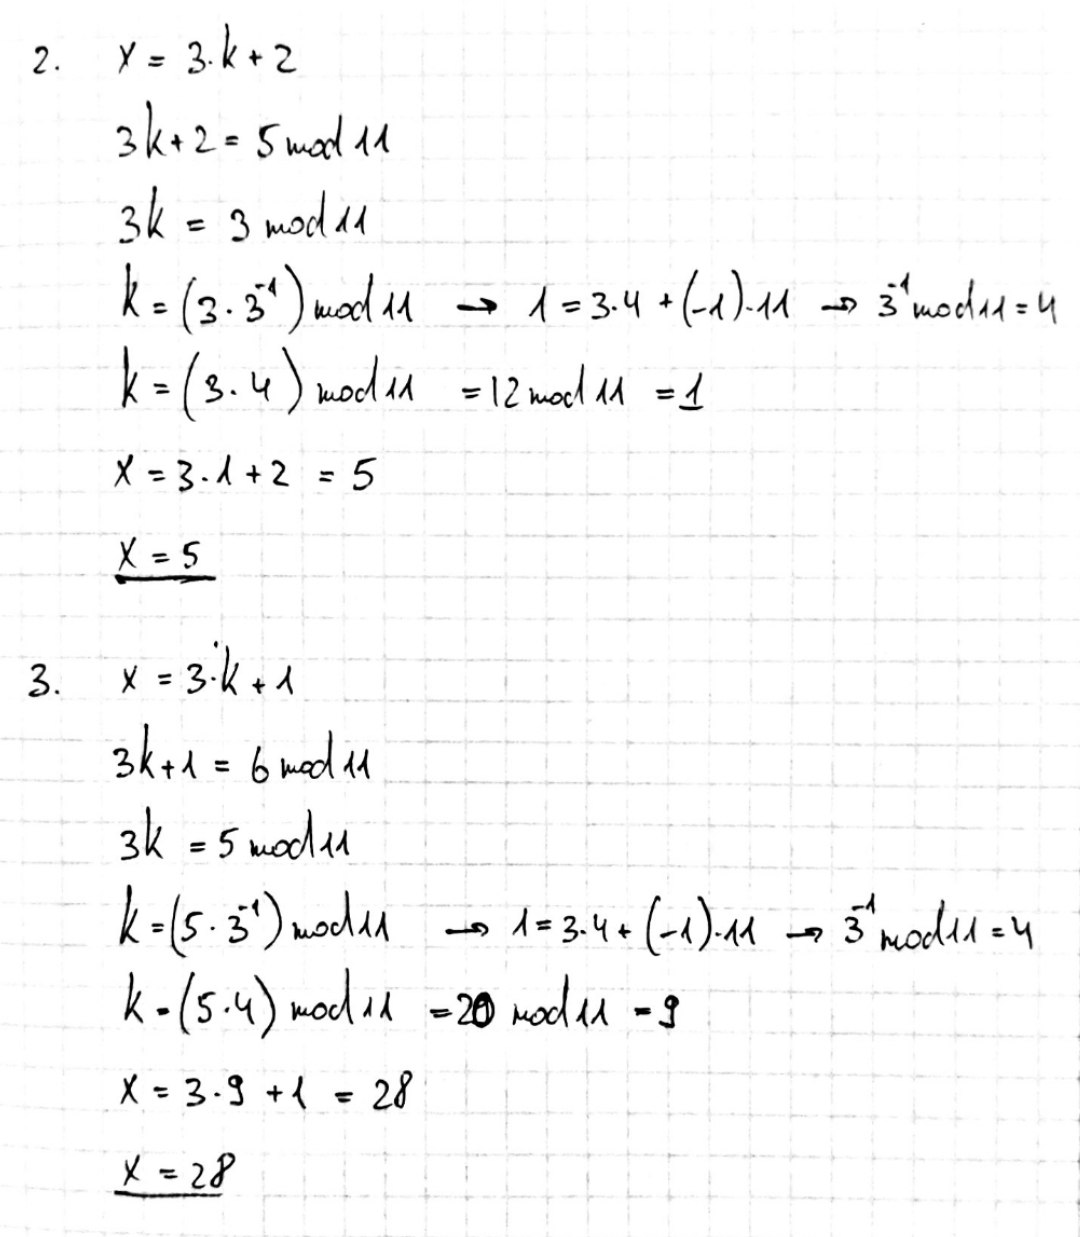 2. x = 3·k + 2
3k + 2 = 5 mod 11
3k = 3 mod 11
k = (3 · 3⁻¹) mod 11 → 1 = 3·4 + (-1)·11 → 3⁻¹ mod 11 = 4
k = (3 · 4) mod 11 = 12 mod 11 = 1
x = 3 · 1 + 2 = 5
x = 5
3. x = 3·k + 1
3k + 1 = 6 mod 11
3k = 5 mod 11
k = (5 · 3⁻¹) mod 11 → 1 = 3·4 + (-1)·11 → 3⁻¹ mod 11 = 4
k = (5·4) mod 11 = 20 mod 11 = 9
x = 3 · 9 + 1 = 28
x = 28